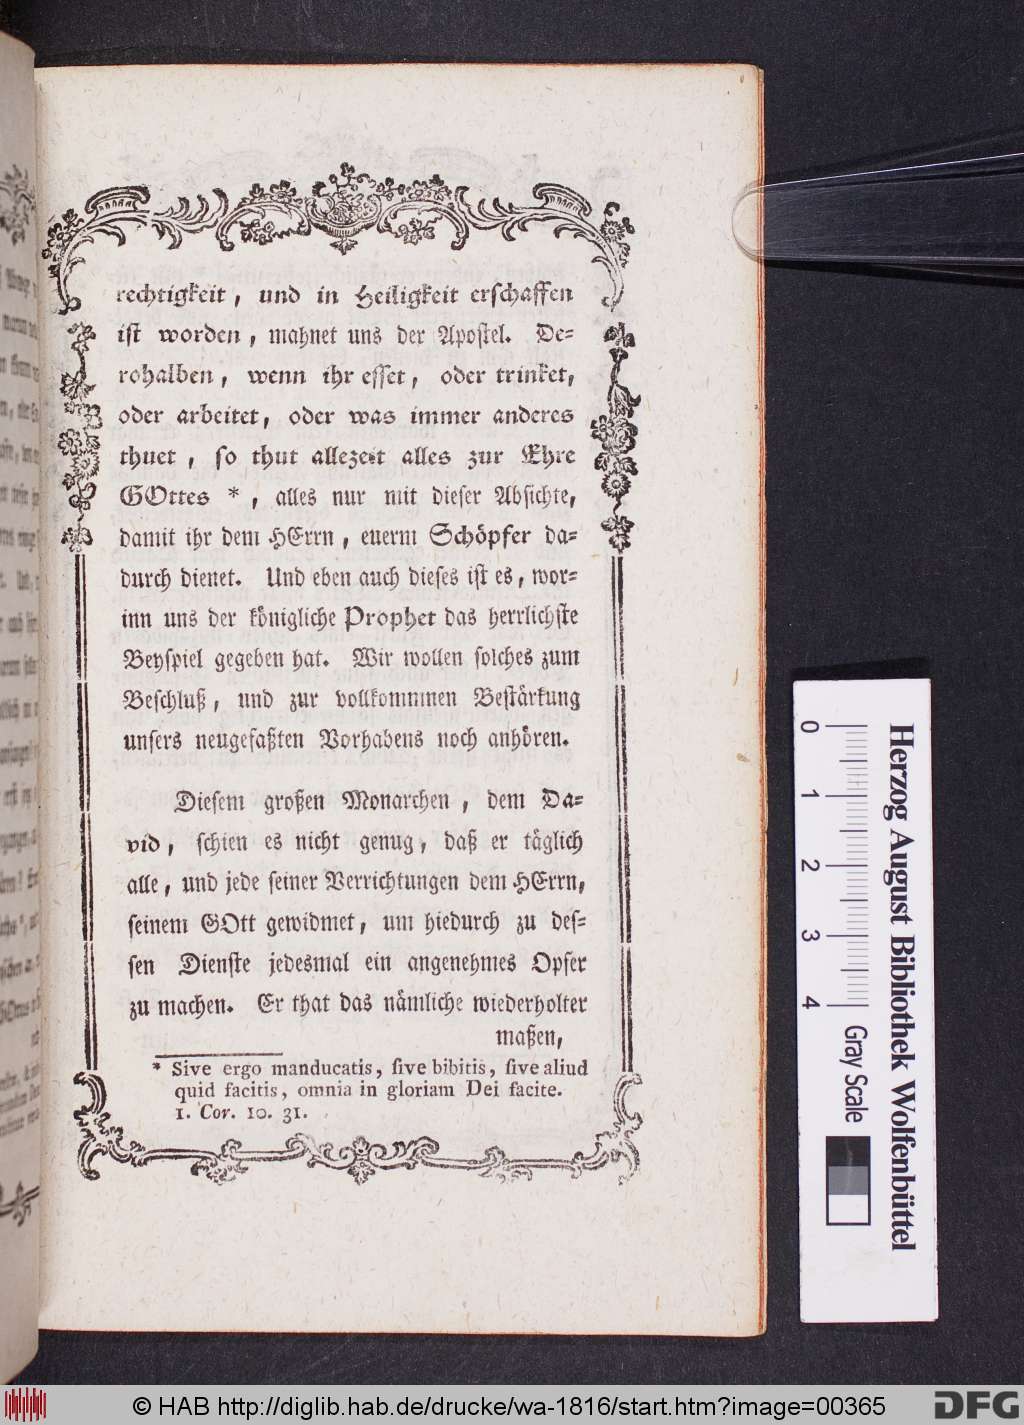 rechtigkeit, und in Heiligkeit erschaffen
ist worden, mahnet uns der Apostel. De-
rohalben, wenn ihr esset, oder trinket,
oder arbeitet, oder was immer anderes
thuet, so thut allezeit alles zur Ehre
GOttes *, alles nur mit dieser Absichte,
damit ihr dem HErrn, euerm Schöpfer da-
durch dienet. Und eben auch dieses ist es, wor-
inn uns der königliche Prophet das herrlichste
Beyspiel gegeben hat. Wir wollen solches zum
Beschluß, und zur vollkommnen Bestärkung
unsers neugefaßten Vorhabens noch anhören.
Diesem großen Monarchen, dem Da-
vid, schien es nicht genug, daß er täglich
alle, und jede seiner Verrichtungen dem HErrn,
seinem GOtt gewidmet, um hiedurch zu des-
sen Dienste jedesmal ein angenehmes Opfer
zu machen. Er that das nämliche wiederholter
maßen,
* Sive ergo manducatis, ſive bibitis, ſive aliud
quid facitis, omnia in gloriam Dei facite.
1. Cor. 10. 31.
Herzog August Bibliothek Wolfenbüttel
0 1 2 3 4 Gray Scale
© HAB http://diglib.hab.de/drucke/wa-1816/start.htm?image=00365
DFG